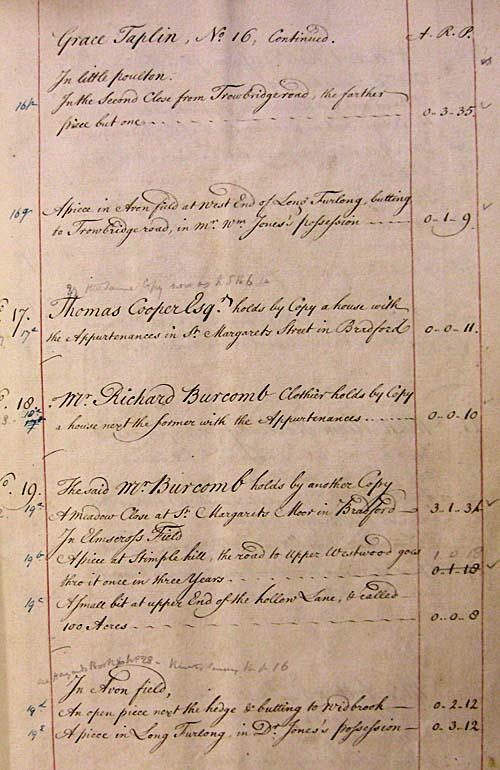 Grace Taplin, No. 16, Continued. A. R. P.
In little poulton.
16p In the Second Close from Trowbridge road, the farther
piece but one 0-3-35
16q A piece in Avon field at West End of Long Furlong, butting
to Trowbridge road, in Mr. Wm. Jones's possession 0-1-9
17. Thomas Cooper Esqr. holds by Copy a house with
17a the Appurtenances in St. Margarets Street in Bradford 0-0-11.
18. Mr. Richard Burcomb Clothier holds by Copy
18a a house next the former with the Appurtenances 0-0-10
19. The said Mr. Burcomb holds by another Copy
19a A Meadow Close at St. Margarets Moor in Bradford 3-1-34
In Elmscross Field
19b A piece at Stimple hill, the road to Upper Westwood goes 1 0 18
thro it once in three Years 0-1-18
19c A Small bit at upper End of the hollow Lane, & called
100 Acres 0-0-8
In Avon field,
19d An open piece next the hedge & butting to Widbrook 0-2-12
19e A piece in Long Furlong, in Dr. Jones's possession 0-3-12